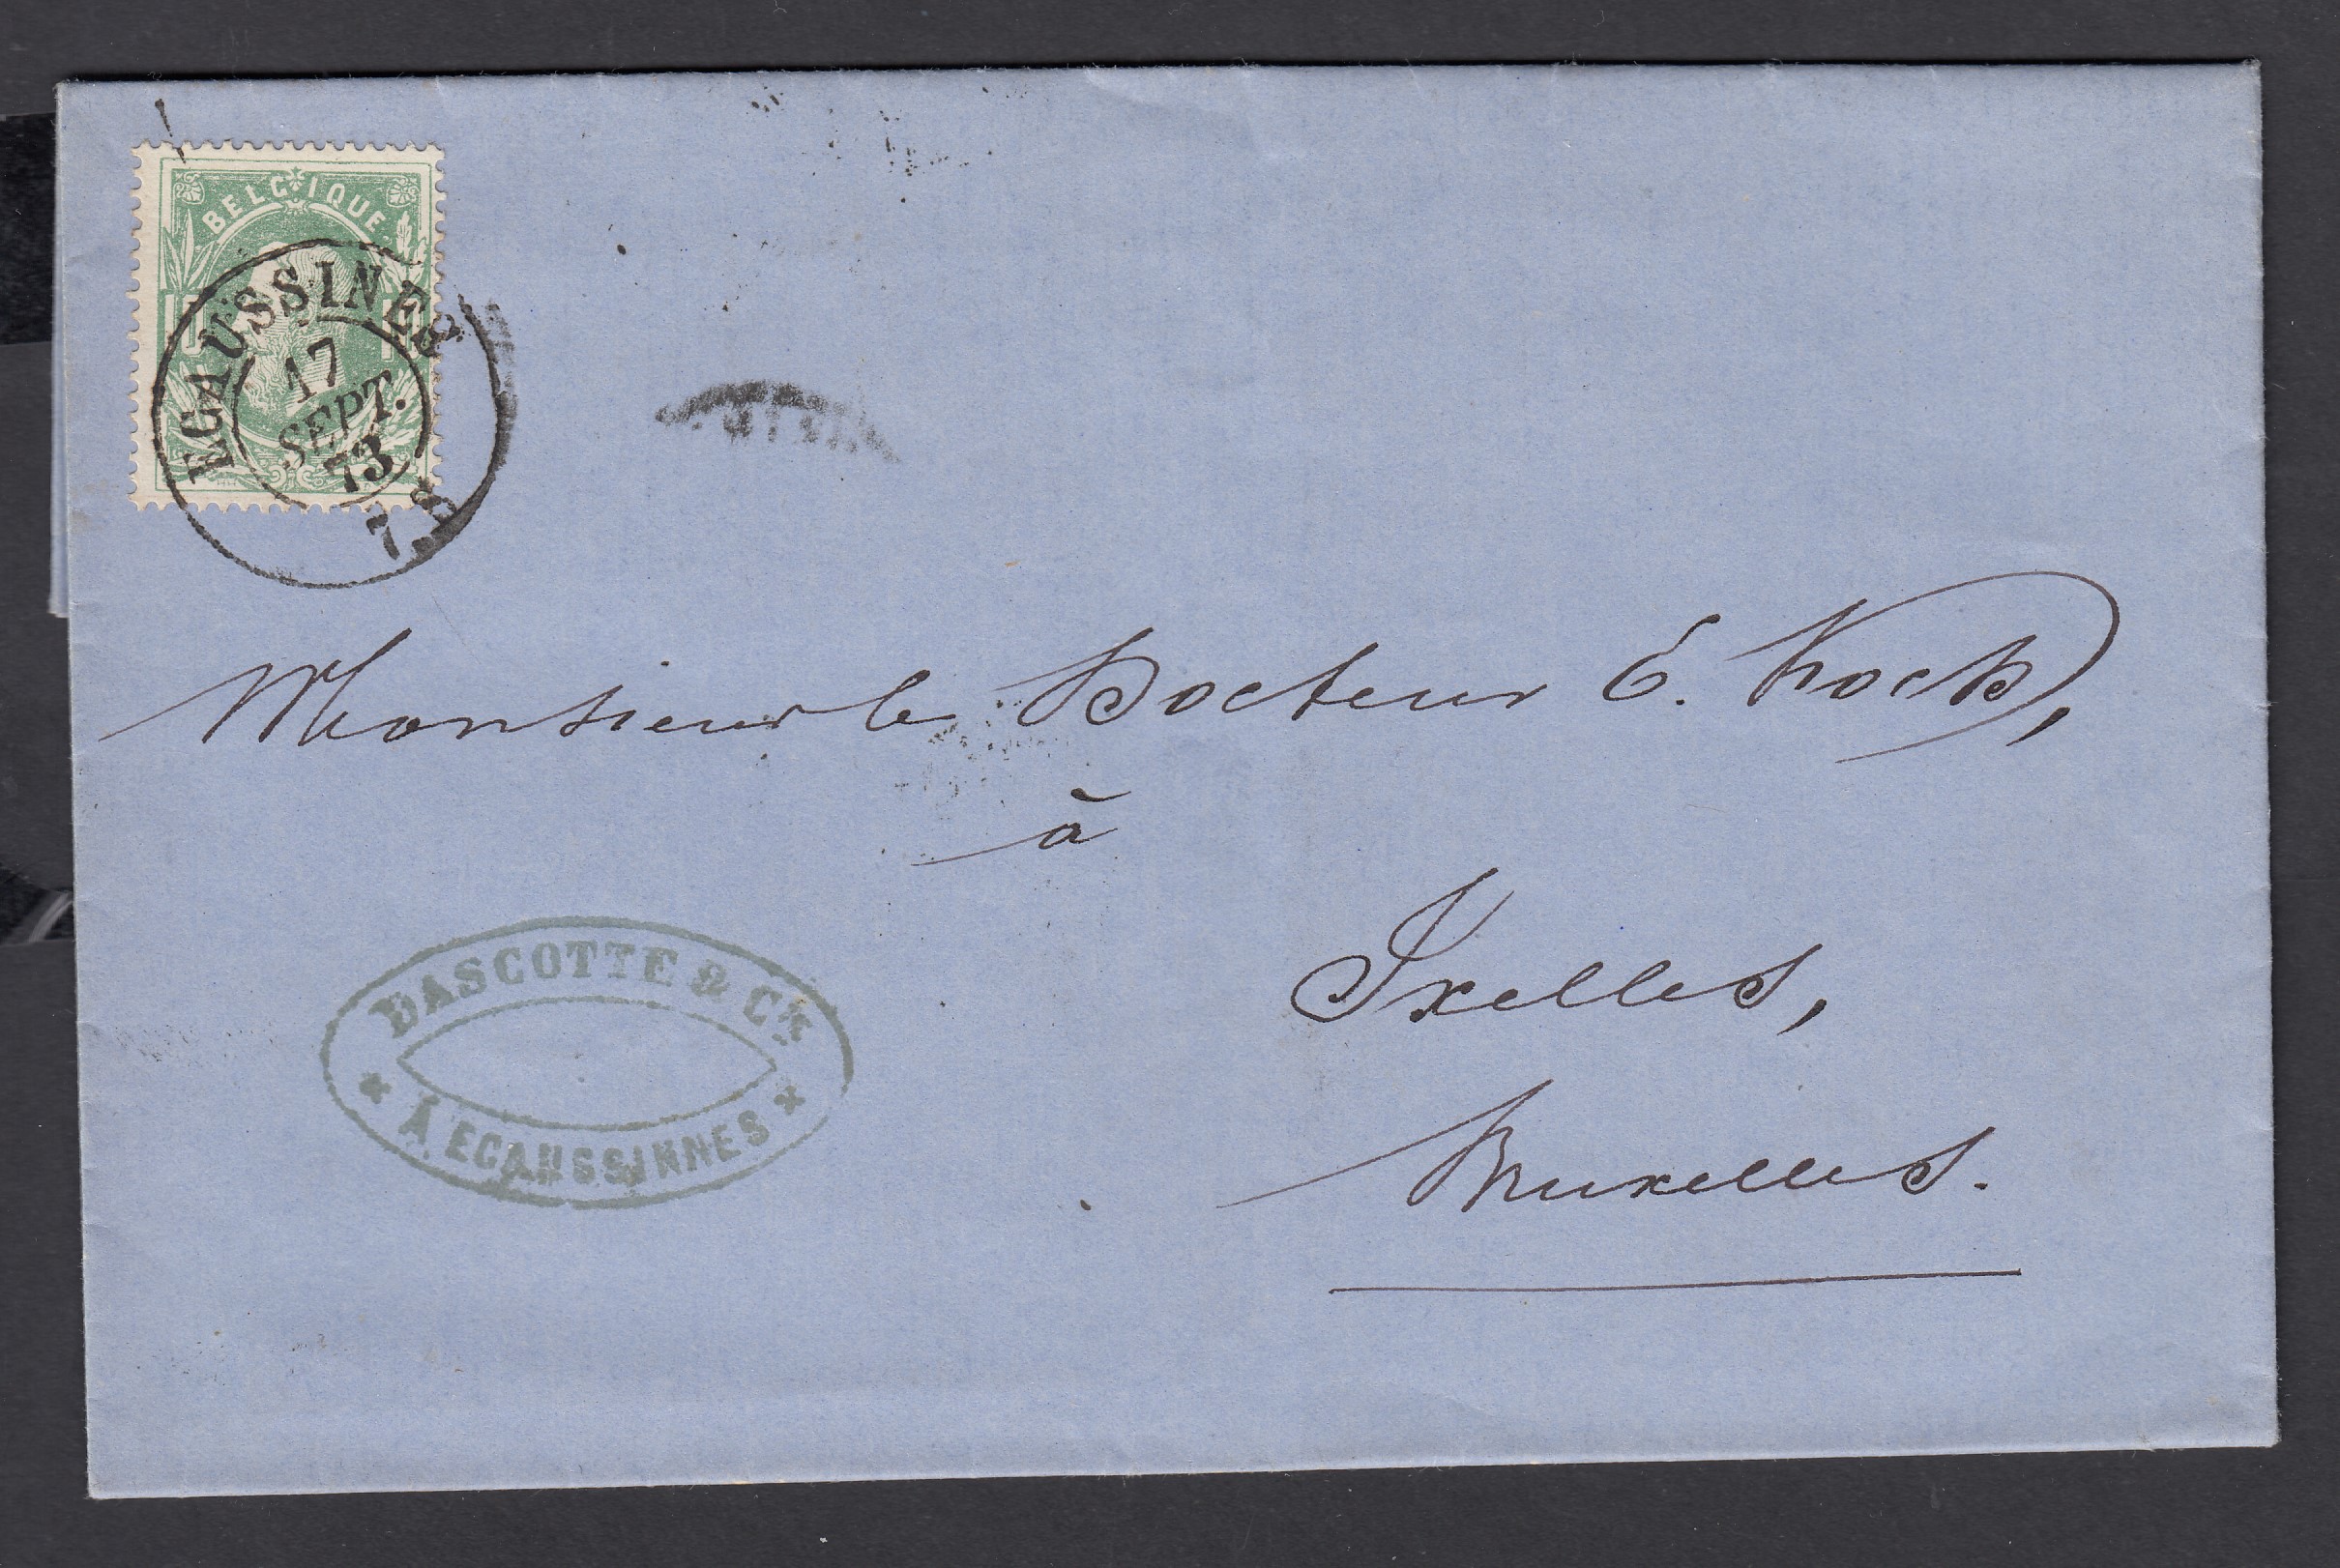 BELGIQUE
10
ECAUSSINES
17
SEPT.
73
7.S
Monsieur le Docteur E. Koch,
à
Ixelles,
Bruxelles.
DASCOTTE & Cie
* À ECAUSSINNES *